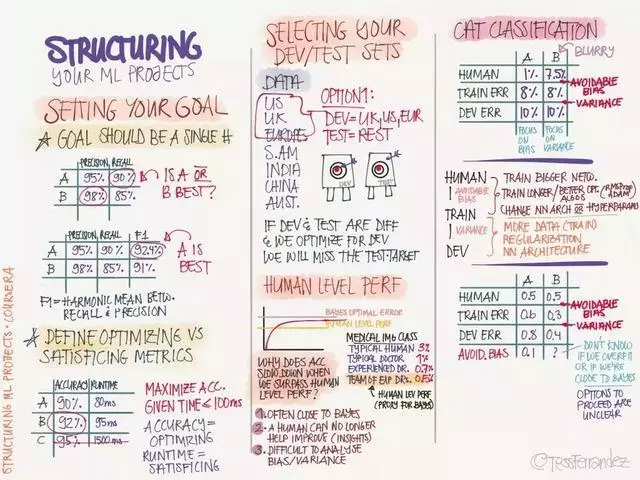 STRUCTURING
YOUR ML PROJECTS
SETTING YOUR GOAL
GOAL SHOULD BE A SINGLE #
PRECISION RECALL
A 95% 90%
B 98% 85%
IS A OR
B BEST?
PRECISION RECALL F1
A 95% 90% 92.4%
B 98% 85% 91%
A IS
BEST
F1 = HARMONIC MEAN BETW.
RECALL & PRECISION
DEFINE OPTIMIZING VS
SATISFICING METRICS
ACCURACY RUNTIME
A 90% 80ms
B 92% 95ms
C 95% 1500ms
MAXIMIZE ACC.
GIVEN TIME ≤ 100ms
ACCURACY =
OPTIMIZING
RUNTIME =
SATISFICING
STRUCTURING ML PROJECTS · COURSERA
SELECTING YOUR
DEV/TEST SETS
DATA
US
UK
EUROPE
S.AM
INDIA
CHINA
AUST.
OPTION1:
DEV = UK, US, EUR
TEST = REST
DEV TEST
IF DEV & TEST ARE DIFF
& WE OPTIMIZE FOR DEV
WE WILL MISS THE TEST-TARGET
HUMAN LEVEL PERF
BAYES OPTIMAL ERROR
HUMAN LEVEL PERF
MEDICAL IMG CLASS
TYPICAL HUMAN 3%
TYPICAL DOCTOR 1%
EXPERIENCED DR. 0.7%
TEAM OF EXP DRS. 0.5%
HUMAN LEV PERF
(PROXY FOR BAYES)
WHY DOES ACC
SLOW DOWN WHEN
WE SURPASS HUMAN
LEVEL PERF?
1. OFTEN CLOSE TO BAYES
2. A HUMAN CAN NO LONGER
HELP IMPROVE (INSIGHTS)
3. DIFFICULT TO ANALYSE
BIAS/VARIANCE
CAT CLASSIFICATION
A B BLURRY
HUMAN 1% 7.5%
TRAIN ERR 8% 8%
DEV ERR 10% 10%
AVOIDABLE
BIAS
VARIANCE
FOCUS
ON
BIAS
FOCUS
ON
VARIANCE
HUMAN
AVOIDABLE
BIAS
TRAIN
VARIANCE
DEV
TRAIN BIGGER NETW.
TRAIN LONGER/BETTER OPT. ALGOS (RMSProp ADAM)
CHANGE NN ARCH OR HYPERPARAMS
MORE DATA (TRAIN)
REGULARIZATION
NN ARCHITECTURE
A B
HUMAN 0.5 0.5
TRAIN ERR 0.6 0.3
DEV ERR 0.8 0.4
AVOID. BIAS 0.1 ?
AVOIDABLE
BIAS
VARIANCE
DON'T KNOW
IF WE OVERFIT
OR IF WE'RE
CLOSE TO BAYES
OPTIONS TO
PROCEED ARE
UNCLEAR
@TessFerrandez